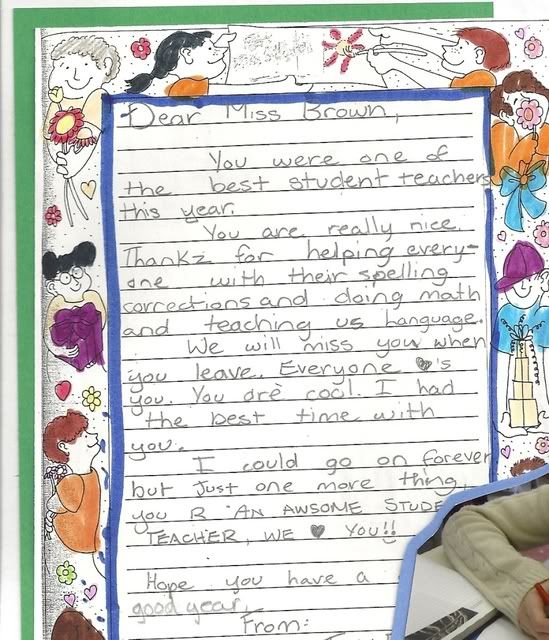 Dear Miss Brown,
You were one of
the best student teachers
this year.
You are really nice.
Thankz for helping every-
one with their spelling
corrections and doing math
and teaching us language.
We will miss you when
you leave. Everyone ♥'s
you. You are cool. I had
the best time with
you.
I could go on forever
but just one more thing,
you R AN AWSOME STUDE
TEACHER, WE ♥ YOU!!
Hope you have a
good year,
From: